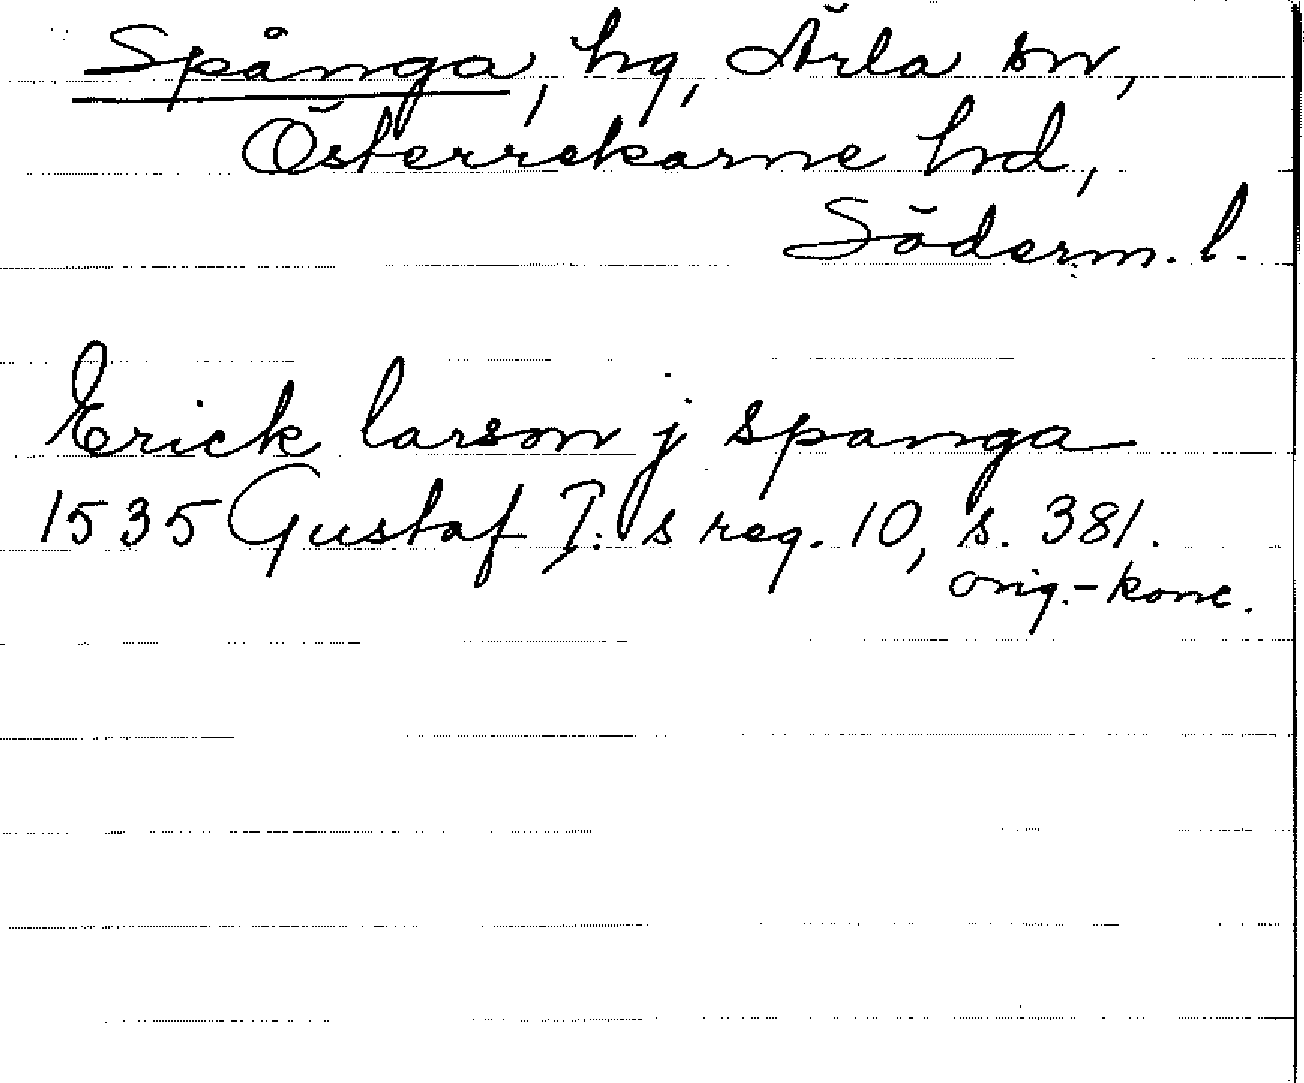 Spånga, hg, Ärla sn,
Österrekarne hd,
Söderm. l.
Erick larson j spanga
1535 Gustaf I:s reg. 10, s. 381.
orig.-konc.